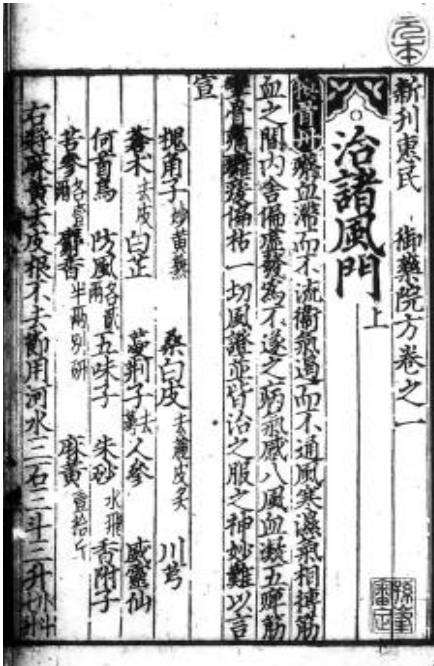 元本
新刊惠民 御藥院方卷之一
治諸風門上
換骨丹 療血滯而不流衞氣過而不通風寒濕氣相搏筋
血之間内舍偏虛發爲不遂之病氣感八風血凝五痹筋
攣骨痛癱瘓偏枯一切風證並皆治之服之神妙難以言
宣
槐角子炒黃熟 桑白皮去麄皮炙 川芎
蒼术去皮 白芷 蔓荆子去萼 人參 威靈仙
何首烏 防風各貳兩 五味子 朱砂水飛 香附子
苦參各壹兩 麝香半兩別研 麻黃壹拾斤
右將麻黃去皮根不去節用河水三石三斗三升